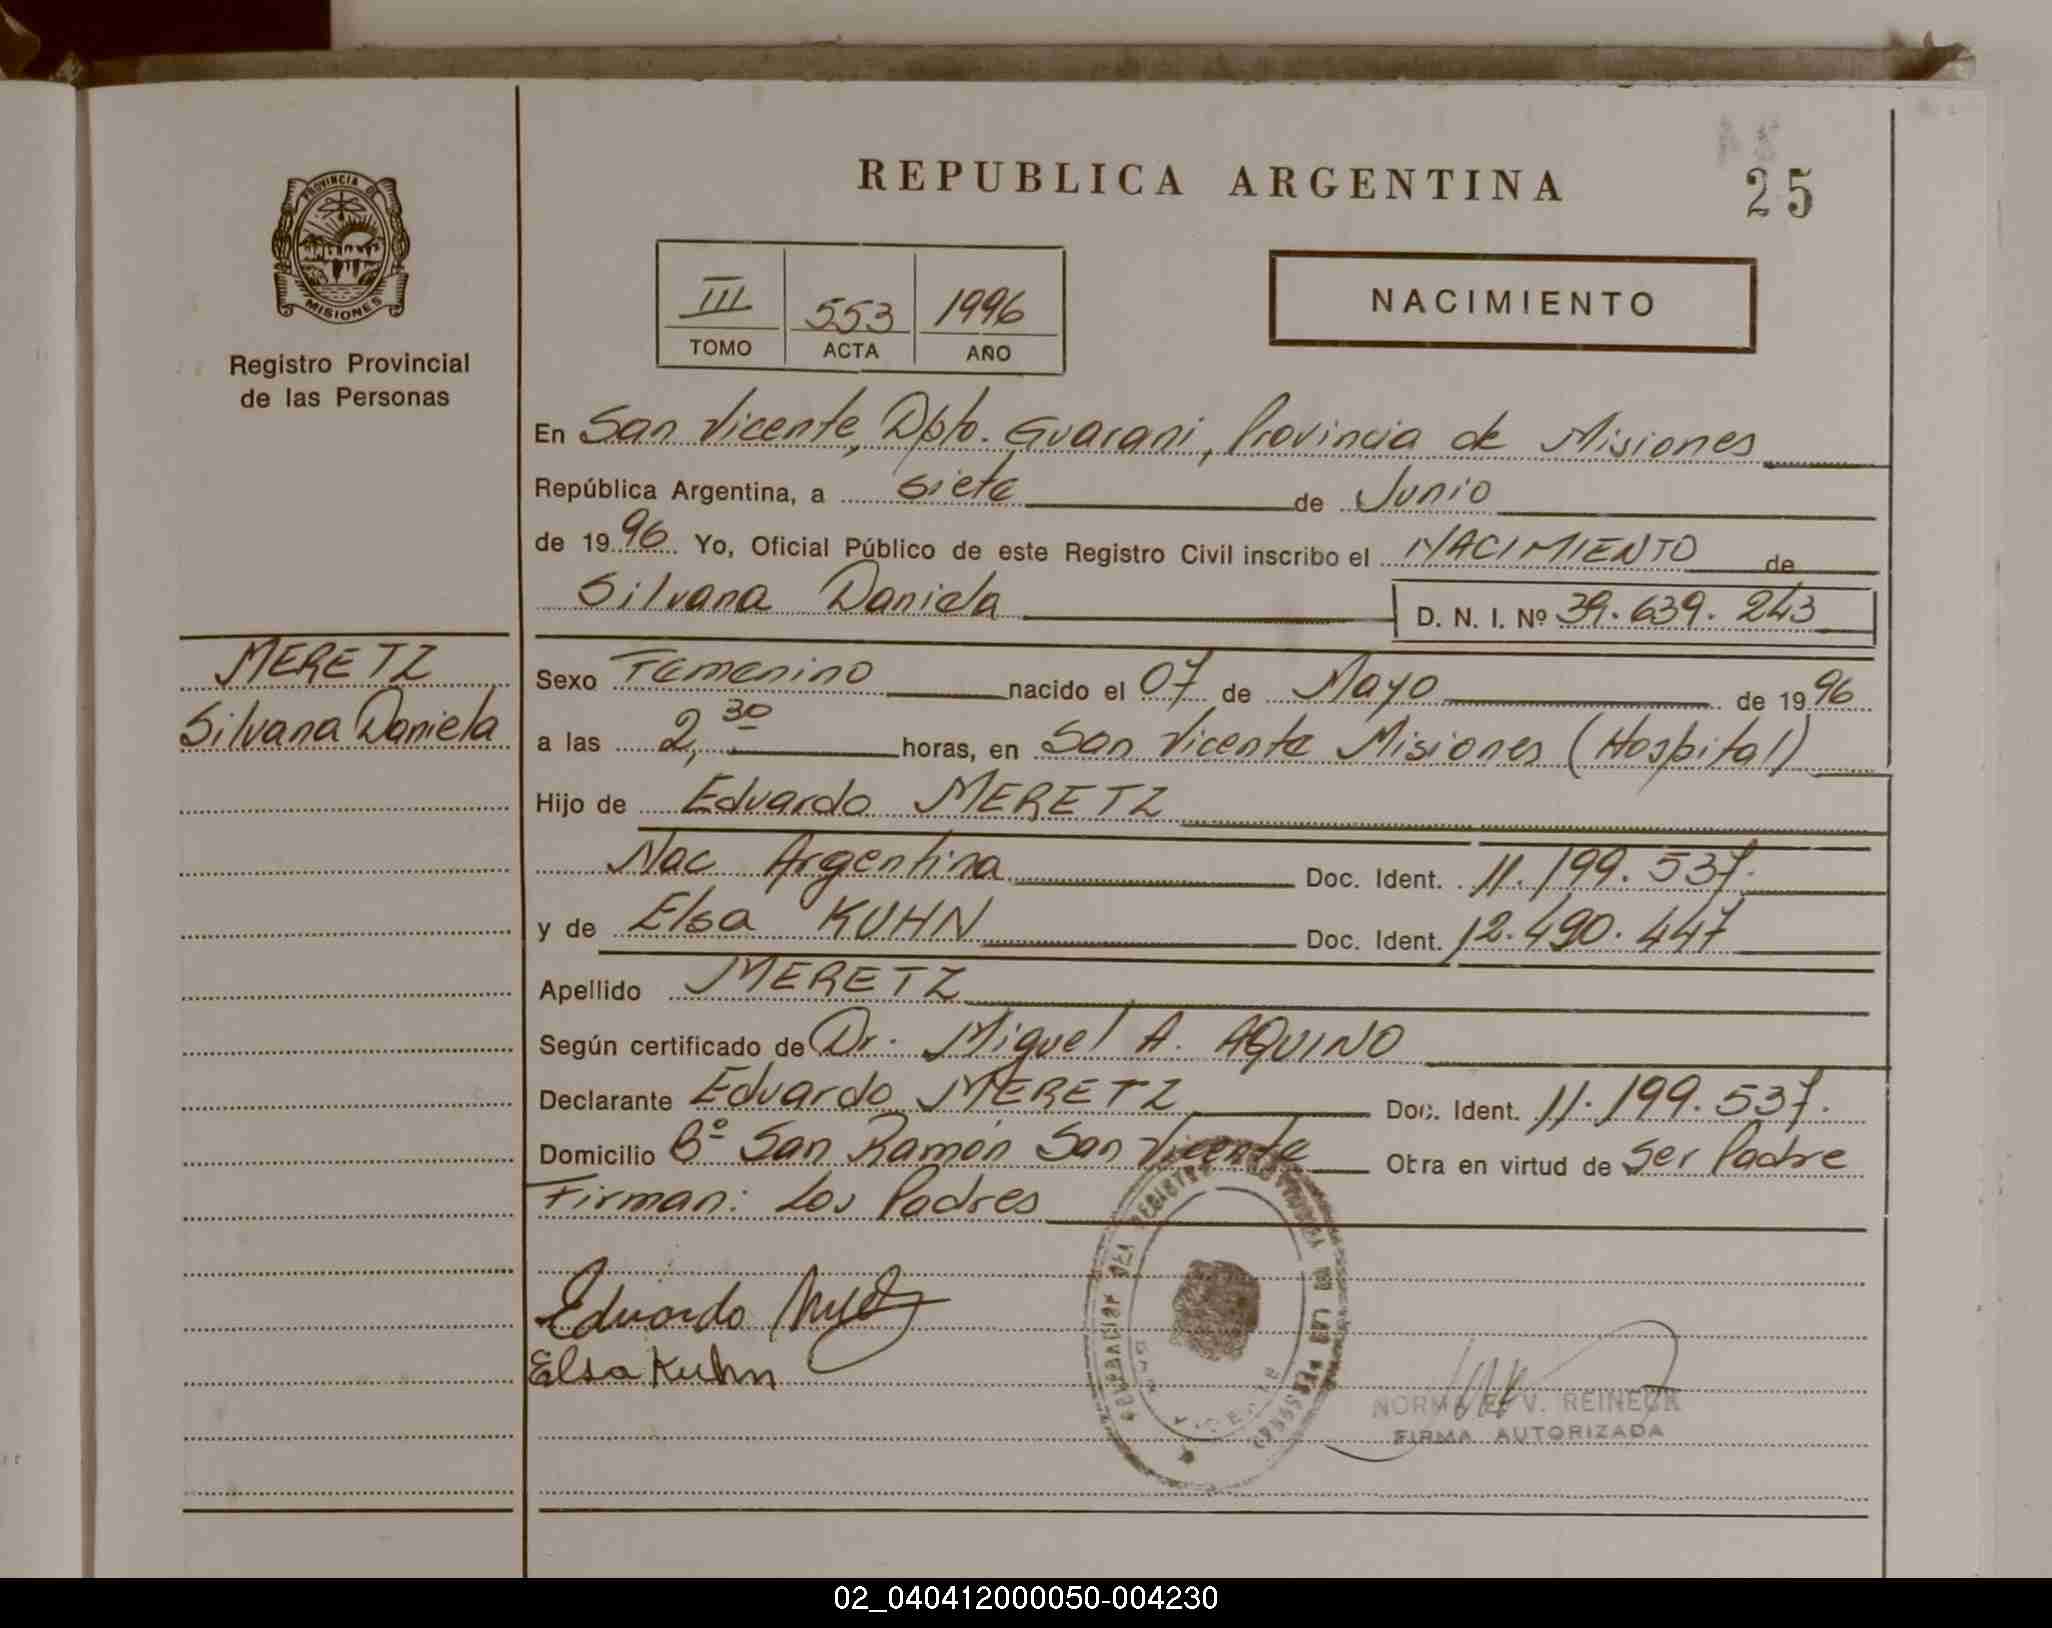 REPUBLICA ARGENTINA
25
PROVINCIA D
MISIONES
Registro Provincial
de las Personas
III 553 1996
TOMO ACTA AÑO
NACIMIENTO
En San Vicente, Dpto. Guarani, Provincia de Misiones
República Argentina, a siete de Junio
de 1996 Yo, Oficial Público de este Registro Civil inscribo el NACIMIENTO de
Silvana Daniela D. N. I. Nº 39.639.243
MERETZ
Silvana Daniela
Sexo Femenino nacido el 07 de Mayo de 1996
a las 2,30 horas, en San Vicente Misiones (Hospital)
Hijo de Eduardo MERETZ
Nac Argentina Doc. Ident. 11.199.537.
y de Elsa KUHN Doc. Ident. 12.490.447
Apellido MERETZ
Según certificado de Dr. Miguel A. AQUINO
Declarante Eduardo MERETZ Doc. Ident. 11.199.537.
Domicilio Bº San Ramón San Vicente Obra en virtud de ser Padre
Firman: Los Padres
Eduardo
Elsa Kuhn
NORMA E. V. REINECK
FIRMA AUTORIZADA
02_040412000050-004230